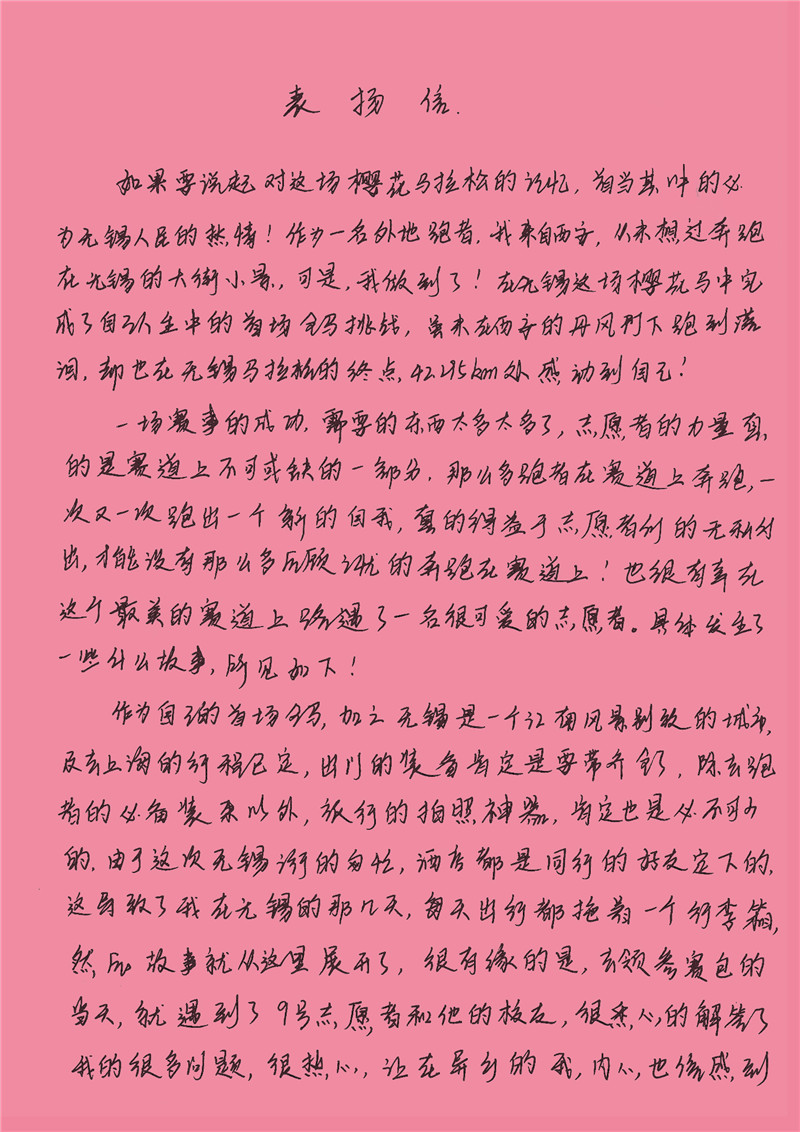 表扬信.
如果要说起对这场樱花马拉松的记忆，首当其冲的必
为无锡人民的热情！作为一名外地跑者，我来自西安，从未想过奔跑
在无锡的大街小景，可是，我做到了！在无锡这场樱花马中完
成了自己人生中的首场全马挑战，虽未在西安的丹凤门下跑到落
泪，却也在无锡马拉松的终点，42.195km处感动到自己！
一场赛事的成功，需要的东西太多太多了，志愿者的力量真
的是赛道上不可或缺的一部分，那么多跑者在赛道上奔跑，一
次又一次跑出一个新的自我，真的得益于志愿者们的无私付
出，才能没有那么多后顾之忧的奔跑在赛道上！也很有幸在
这个最美的赛道上路遇了一名很可爱的志愿者。具体发生了
一些什么故事，所见如下！
作为自己的首场全马，加之无锡是一个江南风景别致的城市，
及去上海的行程已定，出门的装备肯定是要带齐全，除去跑
者的必备装束以外，旅行的拍照神器，肯定也是必不可少
的，由于这次无锡行的匆忙，酒店都是同行的好友定下的，
这导致了我在无锡的那几天，每天出行都拖着一个行李箱，
然后故事就从这里展开了，很有缘的是，去领参赛包的
当天，就遇到了9号志愿者和他的校友，很悉心的解答了
我的很多问题，很热心，让在异乡的我，内心也倍感到